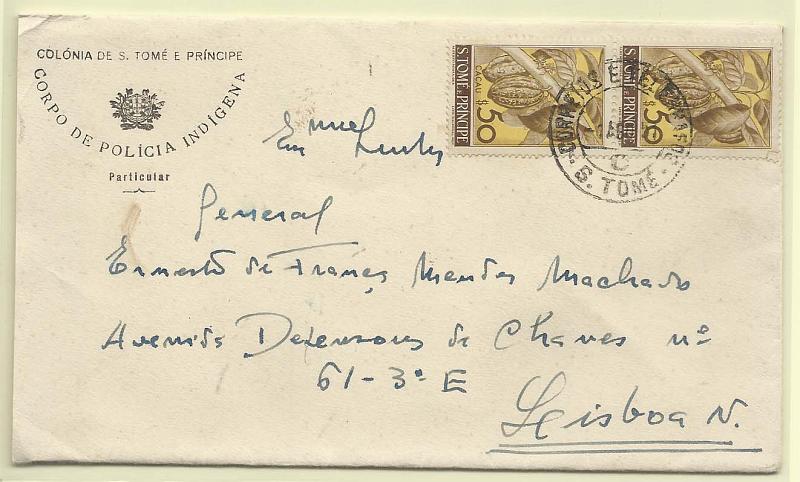 COLÓNIA DE S. TOMÉ E PRÍNCIPE
CORPO DE POLÍCIA INDÍGENA
Particular
S. TOMÉ E PRÍNCIPE
CACAU
$50
S. TOMÉ E PRÍNCIPE
CACAU
$50
CORREIOS E TELEGRAFOS
C
S. TOMÉ
General
Ernesto de França Mendes Machado
Avenida Defensores de Chaves nº
61-3º E
Lisboa N.